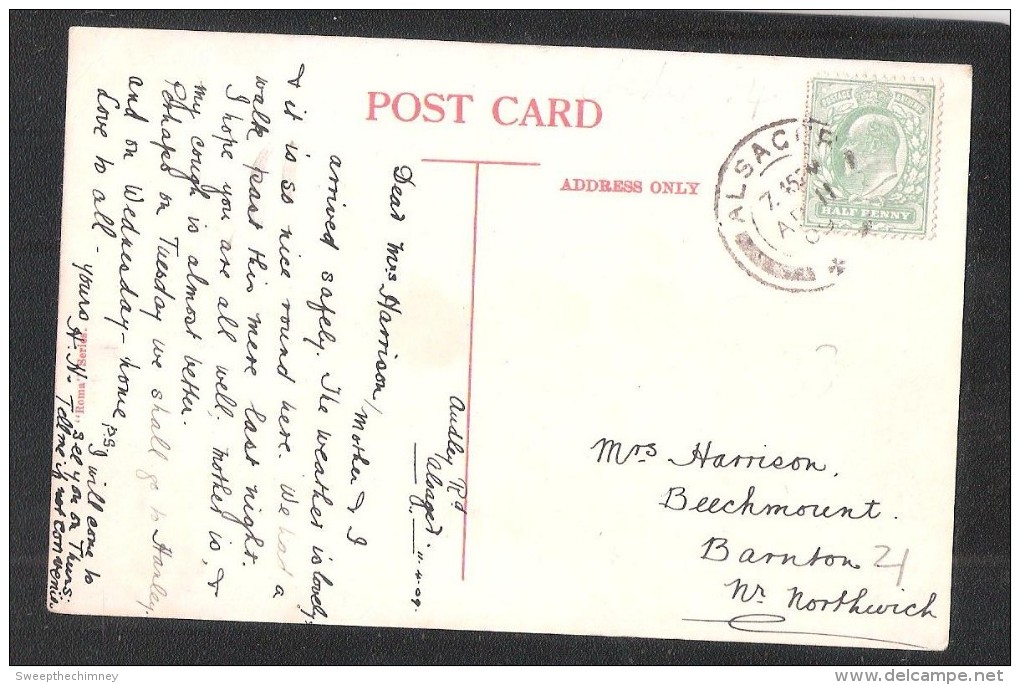 POST CARD
ADDRESS ONLY
HALF PENNY
ALSAGER
7.45 PM
AP 11
09
Audley Rd
Alsager.
11-4-09.
Dear Mrs Harrison,
Mother & I
arrived safely. The weather is lovely
& it is so nice round here. We had a
walk past this mere last night.
I hope you are all well. Mother is, &
my cough is almost better.
Perhaps on Tuesday we shall go to Hanley,
and on Wednesday - home
Love to all - yours
H. N.
PS. I will come to
see you on Thurs.
Tell me if not convenient.
"Roma" Series.
Mrs Harrison,
Beechmount.
Barnton
Nr Northwich
21
Sweepthechimney
delcampe.net